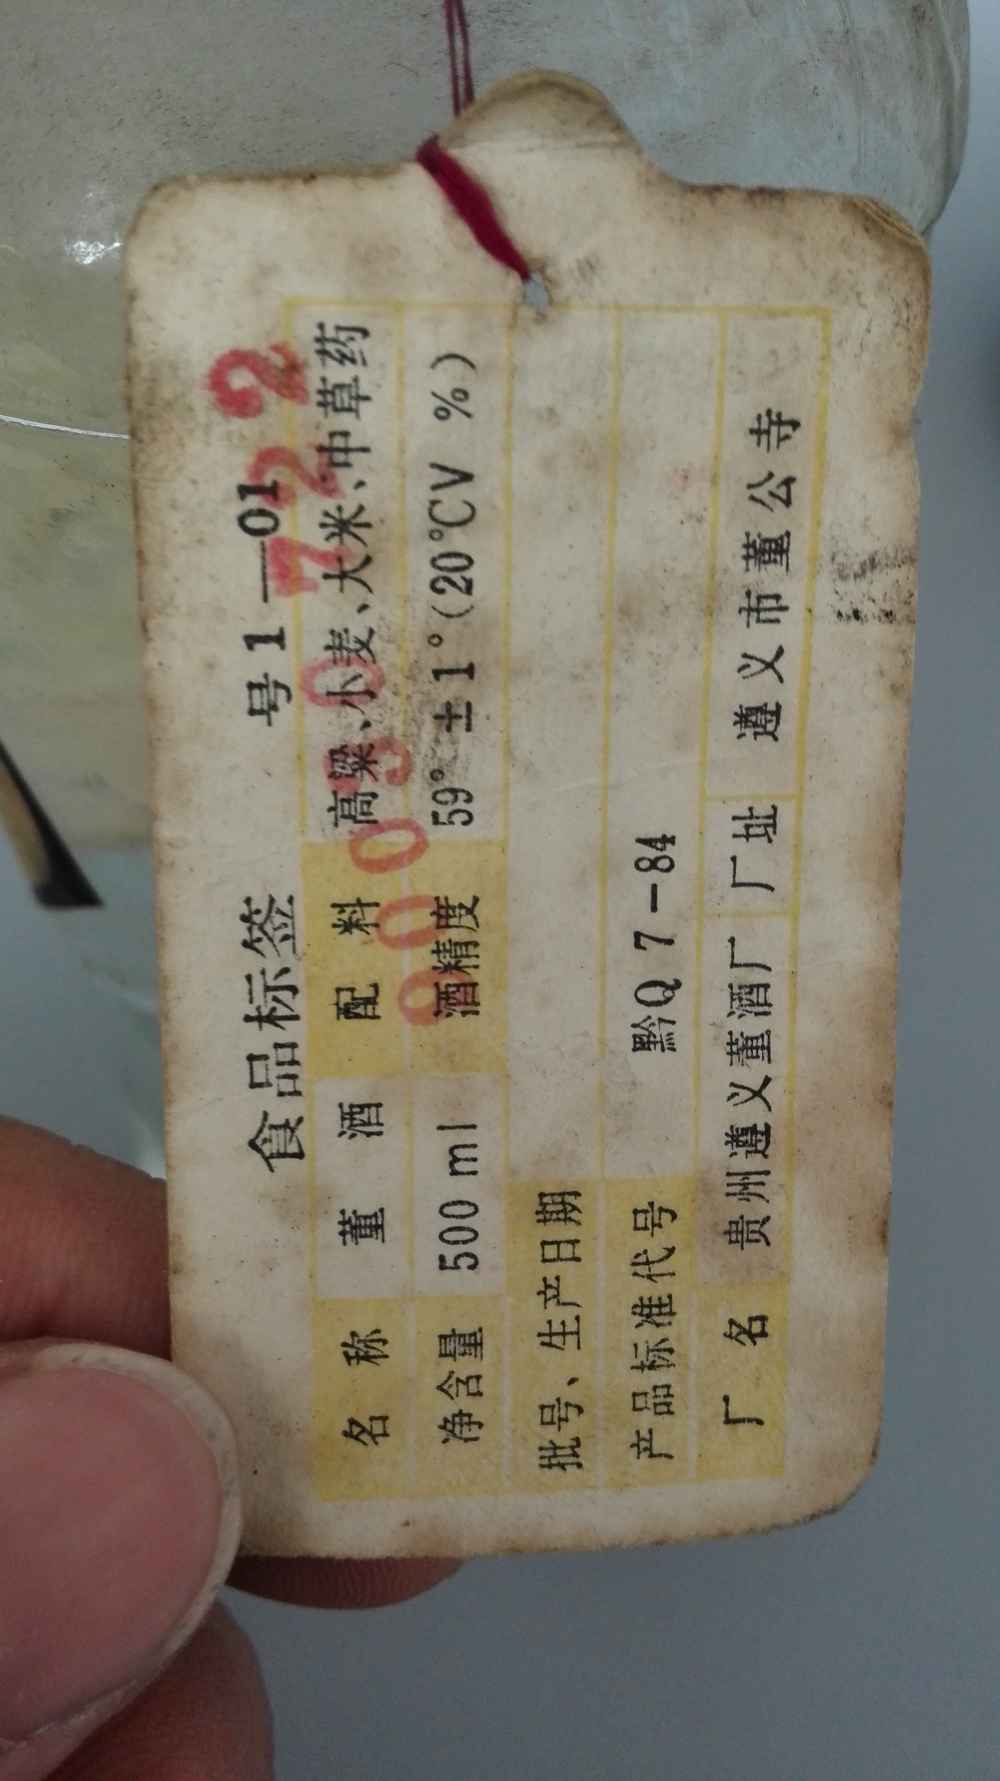 食品标签 号1—01
名称 董酒 配料 高粱、小麦、大米、中草药
净含量 500 ml 酒精度 59° ±1°(20℃V %)
批号、生产日期
产品标准代号 黔Q 7-84
厂名 贵州遵义董酒厂 厂址 遵义市董公寺